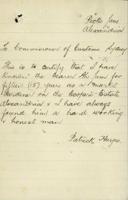 Alexandria
To Commissioner of Customs Sydney
This is to certify that I have
known the bearer Ah
fifteen (15) years as a market
Gardener on the Cooper Estate
Alexandria & I have always
found him a hard working
& honest man
Patrick